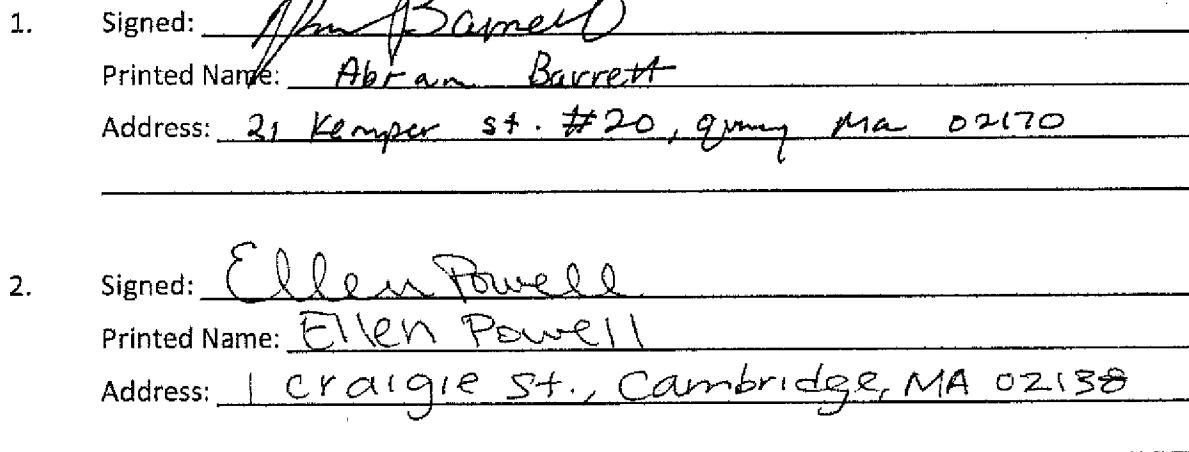 1. Signed: Barrett
Printed Name: Abram Barrett
Address: 21 Kemper st. #20, quincy Ma 02170
2. Signed: Ellen Powell
Printed Name: Ellen Powell
Address: 1 craigie St., Cambridge, MA 02138